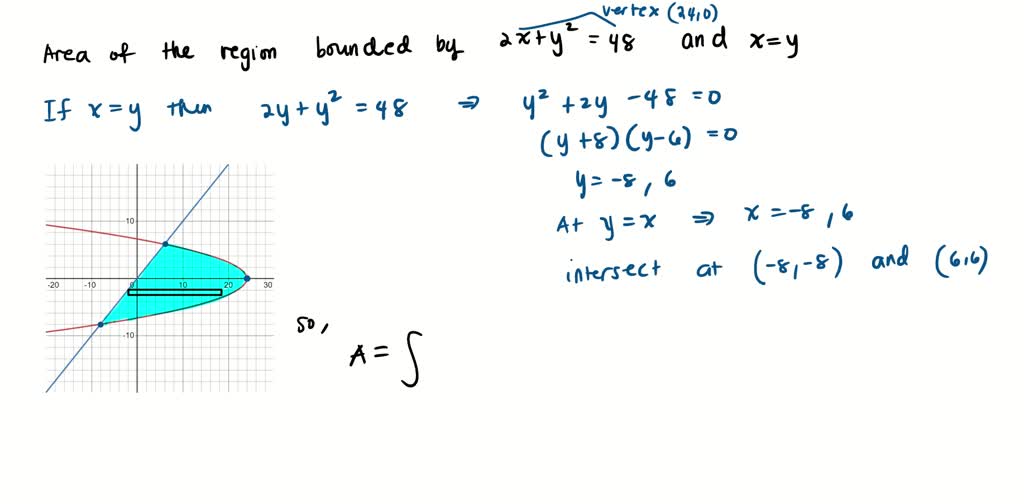 vertex (24,0)
Area of the region bounded by 2x+y² = 48 and x=y
If x=y then 2y+y² = 48 ⇒ y² +2y -48 =0
(y+8)(y-6) =0
y= -8, 6
At y=x ⇒ x =-8, 6
intersect at (-8,-8) and (6,6)
10
-20 -10 0 10 20 30
-10
so,
A = ∫